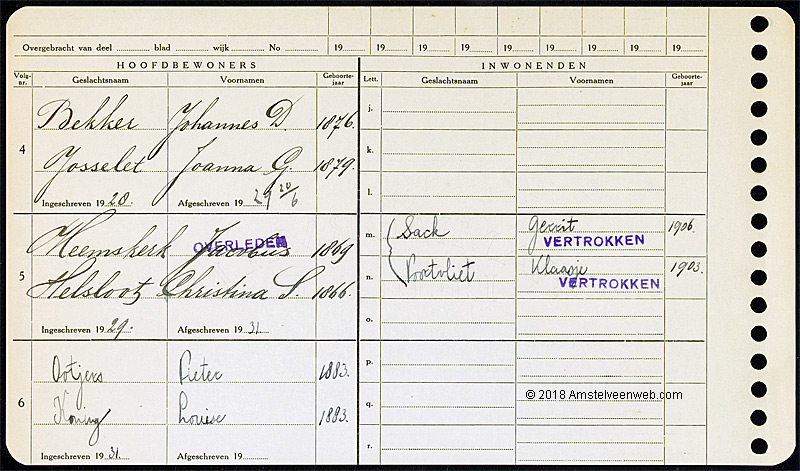 Overgebracht van deel ............ blad ............ wijk ............ No ............ 19...... 19...... 19...... 19...... 19...... 19...... 19...... 19...... 19......
HOOFDBEWONERS INWONENDEN
Volg-nr. Geslachtsnaam Voornamen Geboorte-jaar Lett. Geslachtsnaam Voornamen Geboorte-jaar
Bekker Johannes D. 1876. j.
4 k.
Josselet Joanna G. 1879.
Ingeschreven 1928. Afgeschreven 1929 20/6 l.
Heemskerk Jacobus OVERLEDEN 1869 m. Sack Gerrit VERTROKKEN 1906.
5 Helsloot Christina S. 1866. n. Poortvliet Klaasje VERTROKKEN 1903.
Ingeschreven 1929. Afgeschreven 1931. o.
Ootjers Pieter 1883. p.
6 Koning Louise 1883. q.
© 2018 Amstelveenweb.com
Ingeschreven 1931. Afgeschreven 19...... r.